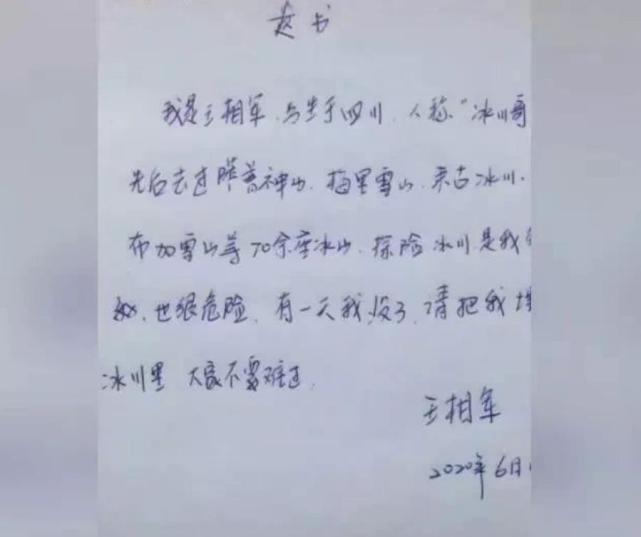 遗书
我是王相军,出生于四川,人称"冰川哥
先后去过神山、梅里雪山、来古冰川、
布加雪山等70余座冰山,探险冰川是我
,也很危险,有一天我没了,请把我埋
冰川里 大家不要难过.
王相军
2020年6月